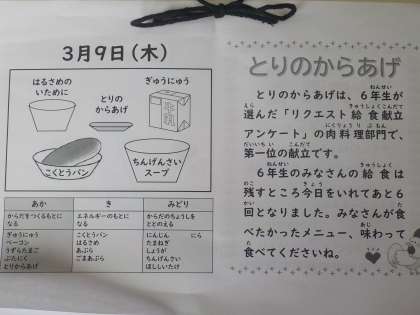 3月9日(木)
はるさめの
いために
ぎゅうにゅう
とりの
からあげ
牛乳
こくとうパン
ちんげんさい
スープ
あか き みどり
からだをつくるもとに
なる
エネルギーのもとに
なる
からだのちょうしを
ととのえる
ぎゅうにゅう
ベーコン
うずらたまご
ぶたにく
とりからあげ
こくとうパン
はるさめ
あぶら
ごまあぶら
にんじん にら
たまねぎ
しょうが
ちんげんさい
ほししいたけ
とりのからあげ
とりのからあげは、6年生が
選んだ「リクエスト給食献立
アンケート」の肉料理部門で、
第一位の献立です。
6年生のみなさんの給食は
残すところ今日をいれてあと6
回となりました。みなさんが食
べたかったメニュー、味わって
食べてくださいね。